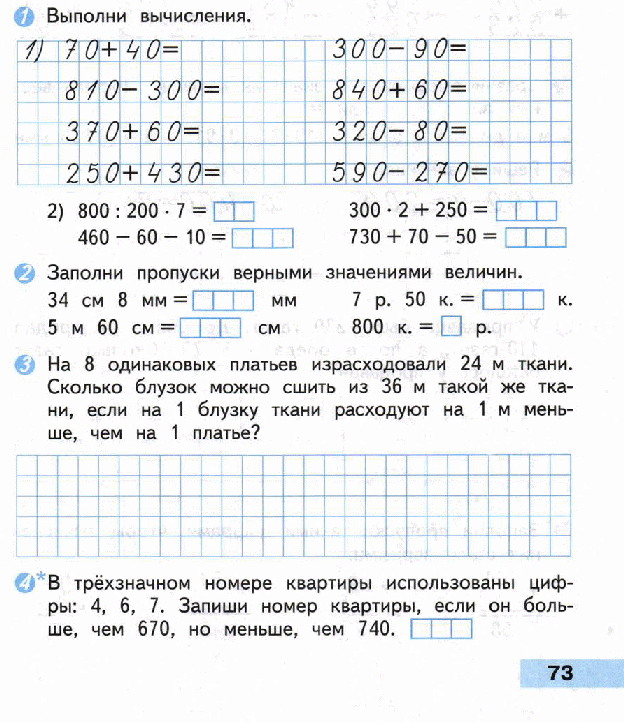 1 Выполни вычисления.
1) 70+40= 300-90=
810-300= 840+60=
370+60= 320-80=
250+430= 590-270=
2) 800 : 200 · 7 = 300 · 2 + 250 =
460 − 60 − 10 = 730 + 70 − 50 =
2 Заполни пропуски верными значениями величин.
34 см 8 мм = мм 7 р. 50 к. = к.
5 м 60 см = см 800 к. = р.
3 На 8 одинаковых платьев израсходовали 24 м ткани.
Сколько блузок можно сшить из 36 м такой же тка-
ни, если на 1 блузку ткани расходуют на 1 м мень-
ше, чем на 1 платье?
4* В трёхзначном номере квартиры использованы циф-
ры: 4, 6, 7. Запиши номер квартиры, если он боль-
ше, чем 670, но меньше, чем 740.
73